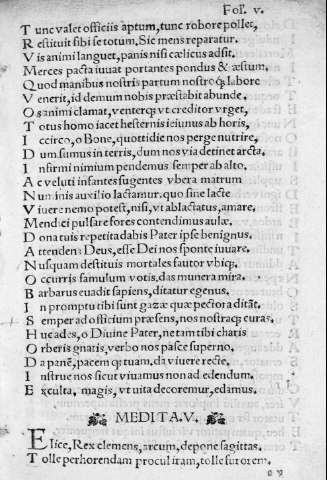 Fol. v.
T unc valet officiis aptum, tunc robore pollet,
R estituit sibi se totum. Sic mens reparatur.
V is animi languet, panis nisi cælicus adsit.
M erces pacta iuuat portantes pondus & æstum.
Q uod manibus nostris partum nostroq; labore
V enerit, id demum nobis præstabit abunde.
O s animi clamat, venterq; vt creditor vrget,
T otus homo iacet hesternis ieiunus ab horis,
I ccirco, o Bone, quottidie nos perge nutrire,
D um sumus in terris, dum nos via detinet arcta.
I nfirmi nimium pendemus semper ab alto.
A c veluti infantes sugentes vbera matrum
N uminis auxilio lactamur. quo sine lacte
V iuere nemo potest, nisi, vt ablactatus, amare.
M endici pulsare fores contendimus aulæ.
D ona tuis repetita dabis Pater ipse benignus.
A ttendens Deus, esse Dei nos sponte iuuare.
N usquam destituis mortales fautor vbiq;.
O ccurris famulum votis, das munera mira.
B arbarus euadit sapiens, ditatur egenus.
I n promptu tibi sunt gazæ quæ pectora ditāt.
S emper ad officium præsens, nos nostraq; curas.
H uc ades, o Diuine Pater, ne tam tibi charis
O rberis gnatis, verbo nos pasce superno.
D a panē, pacem q; tuam, da viuere recte.
I nstrue nos sicut viuamus non ad edendum.
E xculta, magis, vt vita decoremur, edamus.
MEDITA. V.
E lice, Rex clemens, arcum, depone sagittas.
T olle perhorrendam procul iram, tolle furorem.